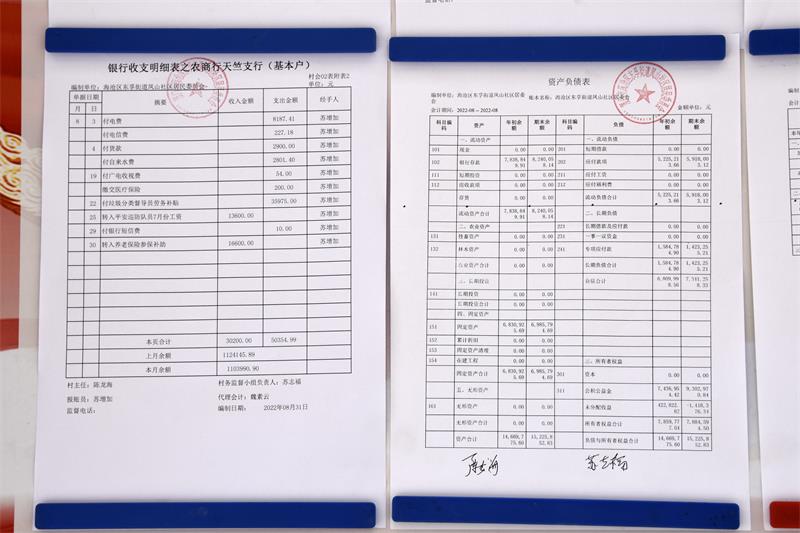 银行收支明细表之农商行天竺支行（基本户）
村会02表附表2
编制单位：海沧区东孚街道凤山社区居民委员会
单位：元
单据日期 摘要 收入金额 支出金额 经手人
月 日
8 3 付电费 8187.41 苏增加
付电信费 227.18 苏增加
4 付货款 2900.00 苏增加
付自来水费 2801.40 苏增加
19 付广电收视费 54.00 苏增加
缴交医疗保险 200.00 苏增加
22 付垃圾分类督导员劳务补贴 35975.00 苏增加
25 转入平安巡防队员7月份工资 13600.00 苏增加
29 付银行短信费 10.00 苏增加
30 转入养老保险参保补助 16600.00 苏增加
本页合计 30200.00 50354.99
上月余额 1124145.89
本月余额 1103990.90
村主任：陈龙海 村务监督小组负责人：苏志福
报账员：苏增加 代理会计：魏素云
监督电话： 编制日期： 2022年08月31日
资产负债表
编制单位：海沧区东孚街道凤山社区居民委员会 账本名称：海沧区东孚街道凤山社区居委会
会计期间：2022-08--2022-08 金额单位：元
科目编码 资产 年初余额 期末余额 科目编码 负债 年初余额 期末余额
一、流动资产 一、流动负债
101 现金 0.00 0.00 201 短期借款 0.00 0.00
102 银行存款 7,838,849.91 8,240,058.14 202 应付款项 5,225,213.66 5,918,003.12
111 短期投资 0.00 0.00 211 应付工资 0.00 0.00
112 应收款项 0.00 0.00 212 应付福利费 0.00 0.00
存货 0.00 0.00 流动负债合计 5,225,213.66 5,918,003.12
流动资产合计 7,838,849.91 8,240,058.14 二、长期负债
二、农业资产 221 长期借款及应付款 0.00 0.00
131 牲畜资产 0.00 0.00 231 一事一议资金 0.00 0.00
132 林木资产 0.00 0.00 241 专项应付款 1,584,784.90 1,423,255.21
农业资产合计 0.00 0.00 长期负债合计 1,584,784.90 1,423,255.21
三、长期投资 负债合计 6,809,998.56 7,341,258.33
141 长期投资 0.00 0.00
长期投资合计 0.00 0.00
四、固定资产
151 固定资产 6,830,925.69 6,985,794.69
152 累计折旧 0.00 0.00
153 固定资产清理 0.00 0.00
154 在建工程 0.00 0.00 三、所有者权益
固定资产合计 6,830,925.69 6,985,794.69 301 资本 0.00 0.00
五、无形资产 311 公积公益金 7,436,954.42 9,302,970.84
161 无形资产 0.00 0.00 未分配收益 422,822.62 -1,418,376.34
无形资产合计 0.00 0.00 所有者权益合计 7,859,777.04 7,884,594.50
资产合计 14,669,775.60 15,225,852.83 负债与所有者权益合计 14,669,775.60 15,225,852.83